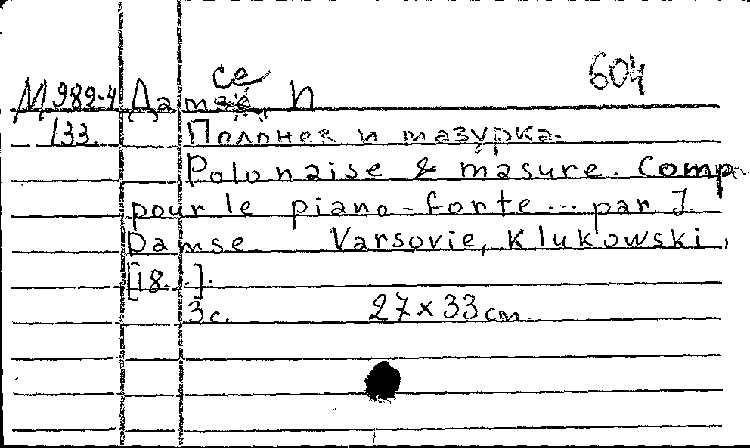 604
М 982-4 Дамсе, И
133. Полонез и мазурка.
Polonaise & masure. Comp.
pour le piano-forte... par J.
Damse. Varsovie, Klukowski,
[18..].
3 с. 27 x 33 см